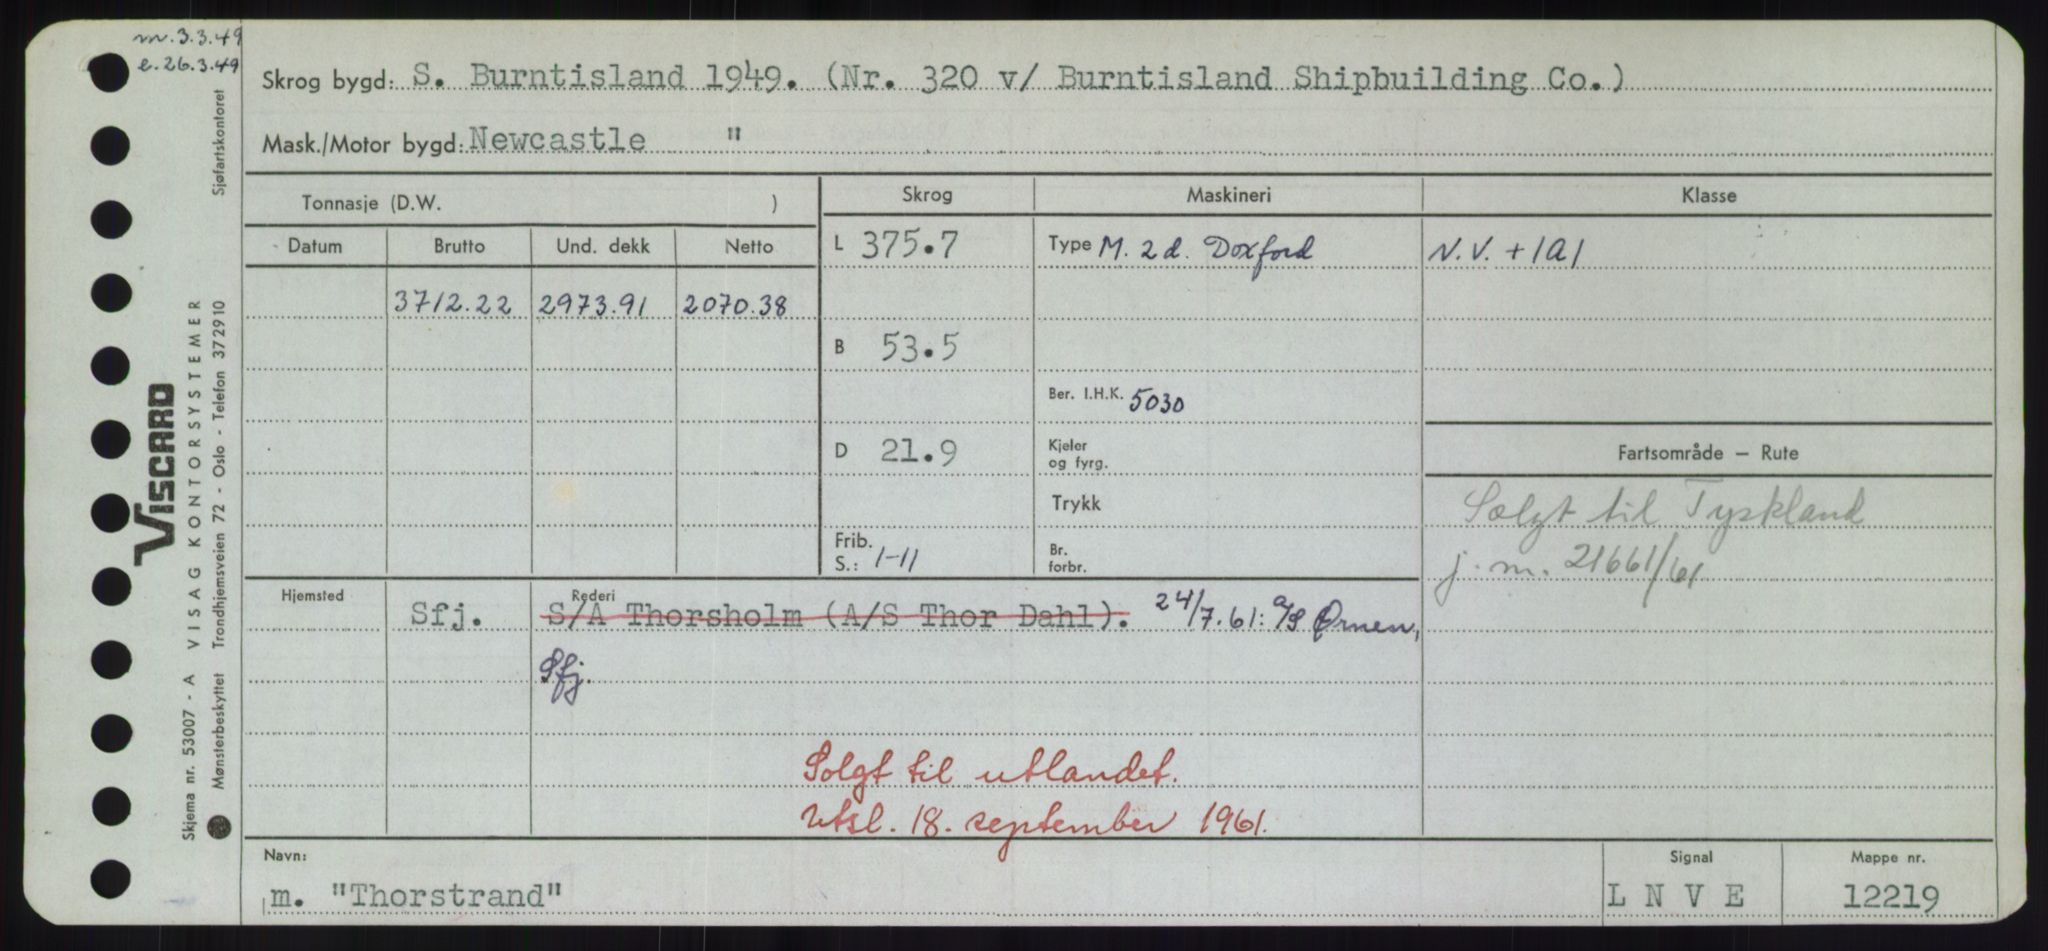 m. 3.3.49
e. 26.3.49
Skrog bygd: S. Burntisland 1949. (Nr. 320 v/ Burntisland Shipbuilding Co.)
Mask./Motor bygd: Newcastle "
Tonnasje (D.W. )
Skrog
Maskineri
Klasse
Datum
Brutto
Und. dekk
Netto
L 375.7
Type M. 2 d. Doxford
N.V. + 1A1
3712.22
2973.91
2070.38
B 53.5
Ber. I.H.K. 5030
D 21.9
Kjeler
og fyrg.
Fartsområde – Rute
Trykk
Solgt til Tyskland
j. m. 21661/61
Frib.
S.: 1-11
Br.
forbr.
Hjemsted
Rederi
Sfj.
S/A Thorsholm (A/S Thor Dahl). 24/7.61: A/S Ørnen,
Sfj.
Solgt til utlandet.
Utsl. 18. september 1961.
Navn:
Signal
Mappe nr.
m. "Thorstrand"
L N V E
12219
VISCARD
Skjema nr. 53007 - A VISAG KONTORSYSTEMER
Mønsterbeskyttet Trondhjemsveien 72 - Oslo - Telefon 372910 Sjøfartskontoret